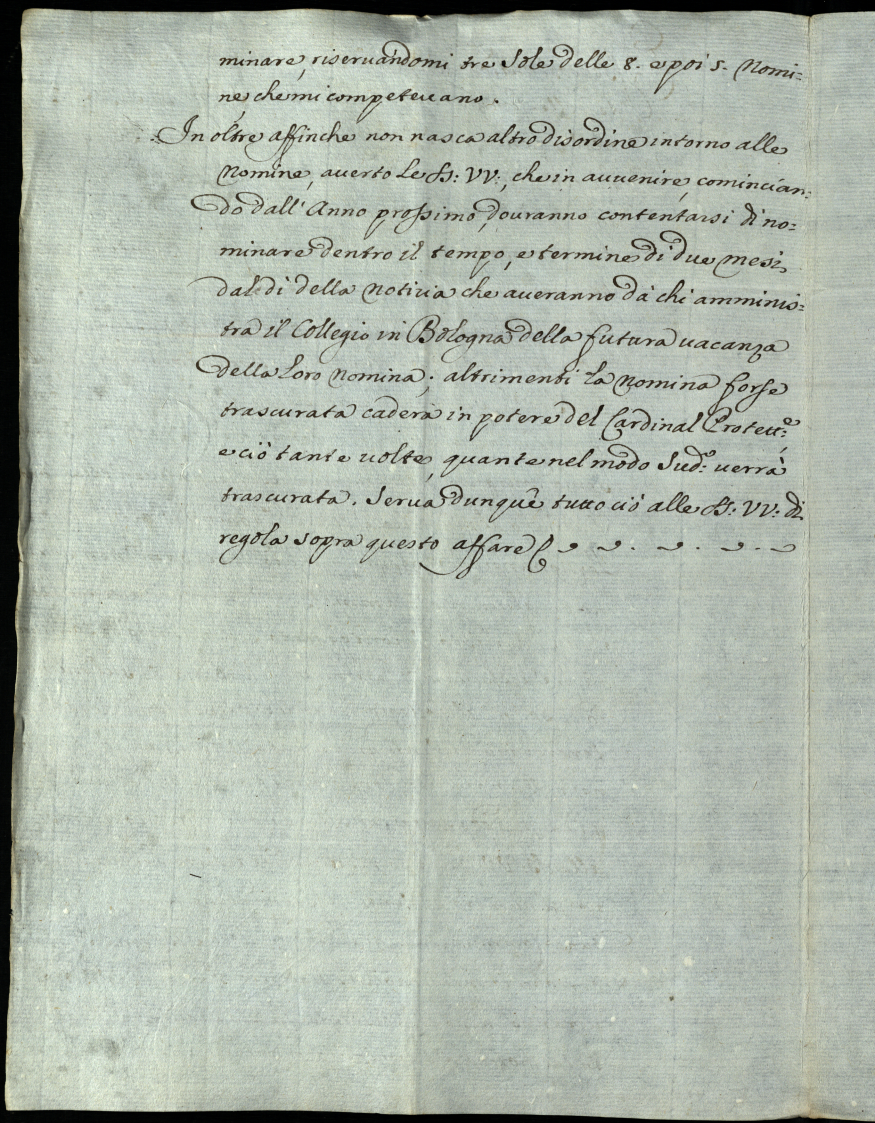 minare, riseruandomi tre sole delle 8. e poi 5. Nomi=
ne, che mi competeuano.
In oltre affinche non nasca altro disordine intorno alle
Nomine, auerto Le SS: VV:, che in auuenire, comincian=
do dall' Anno prossimo, douranno contentarsi di no=
minare dentro il tempo, e termine di due mesi,
dal dì della Notizia che aueranno dà chi amminis=
tra il Collegio in Bologna della futura uacanza
della Loro nomina; altrimenti la nomina forse
trascurata caderà in potere del Cardinal Protett:e
e ciò tante uolte, quante nel modo Sud:o uerrà
trascurata. Serua dunque tutto ciò alle SS: VV: di
regola sopra questo affare